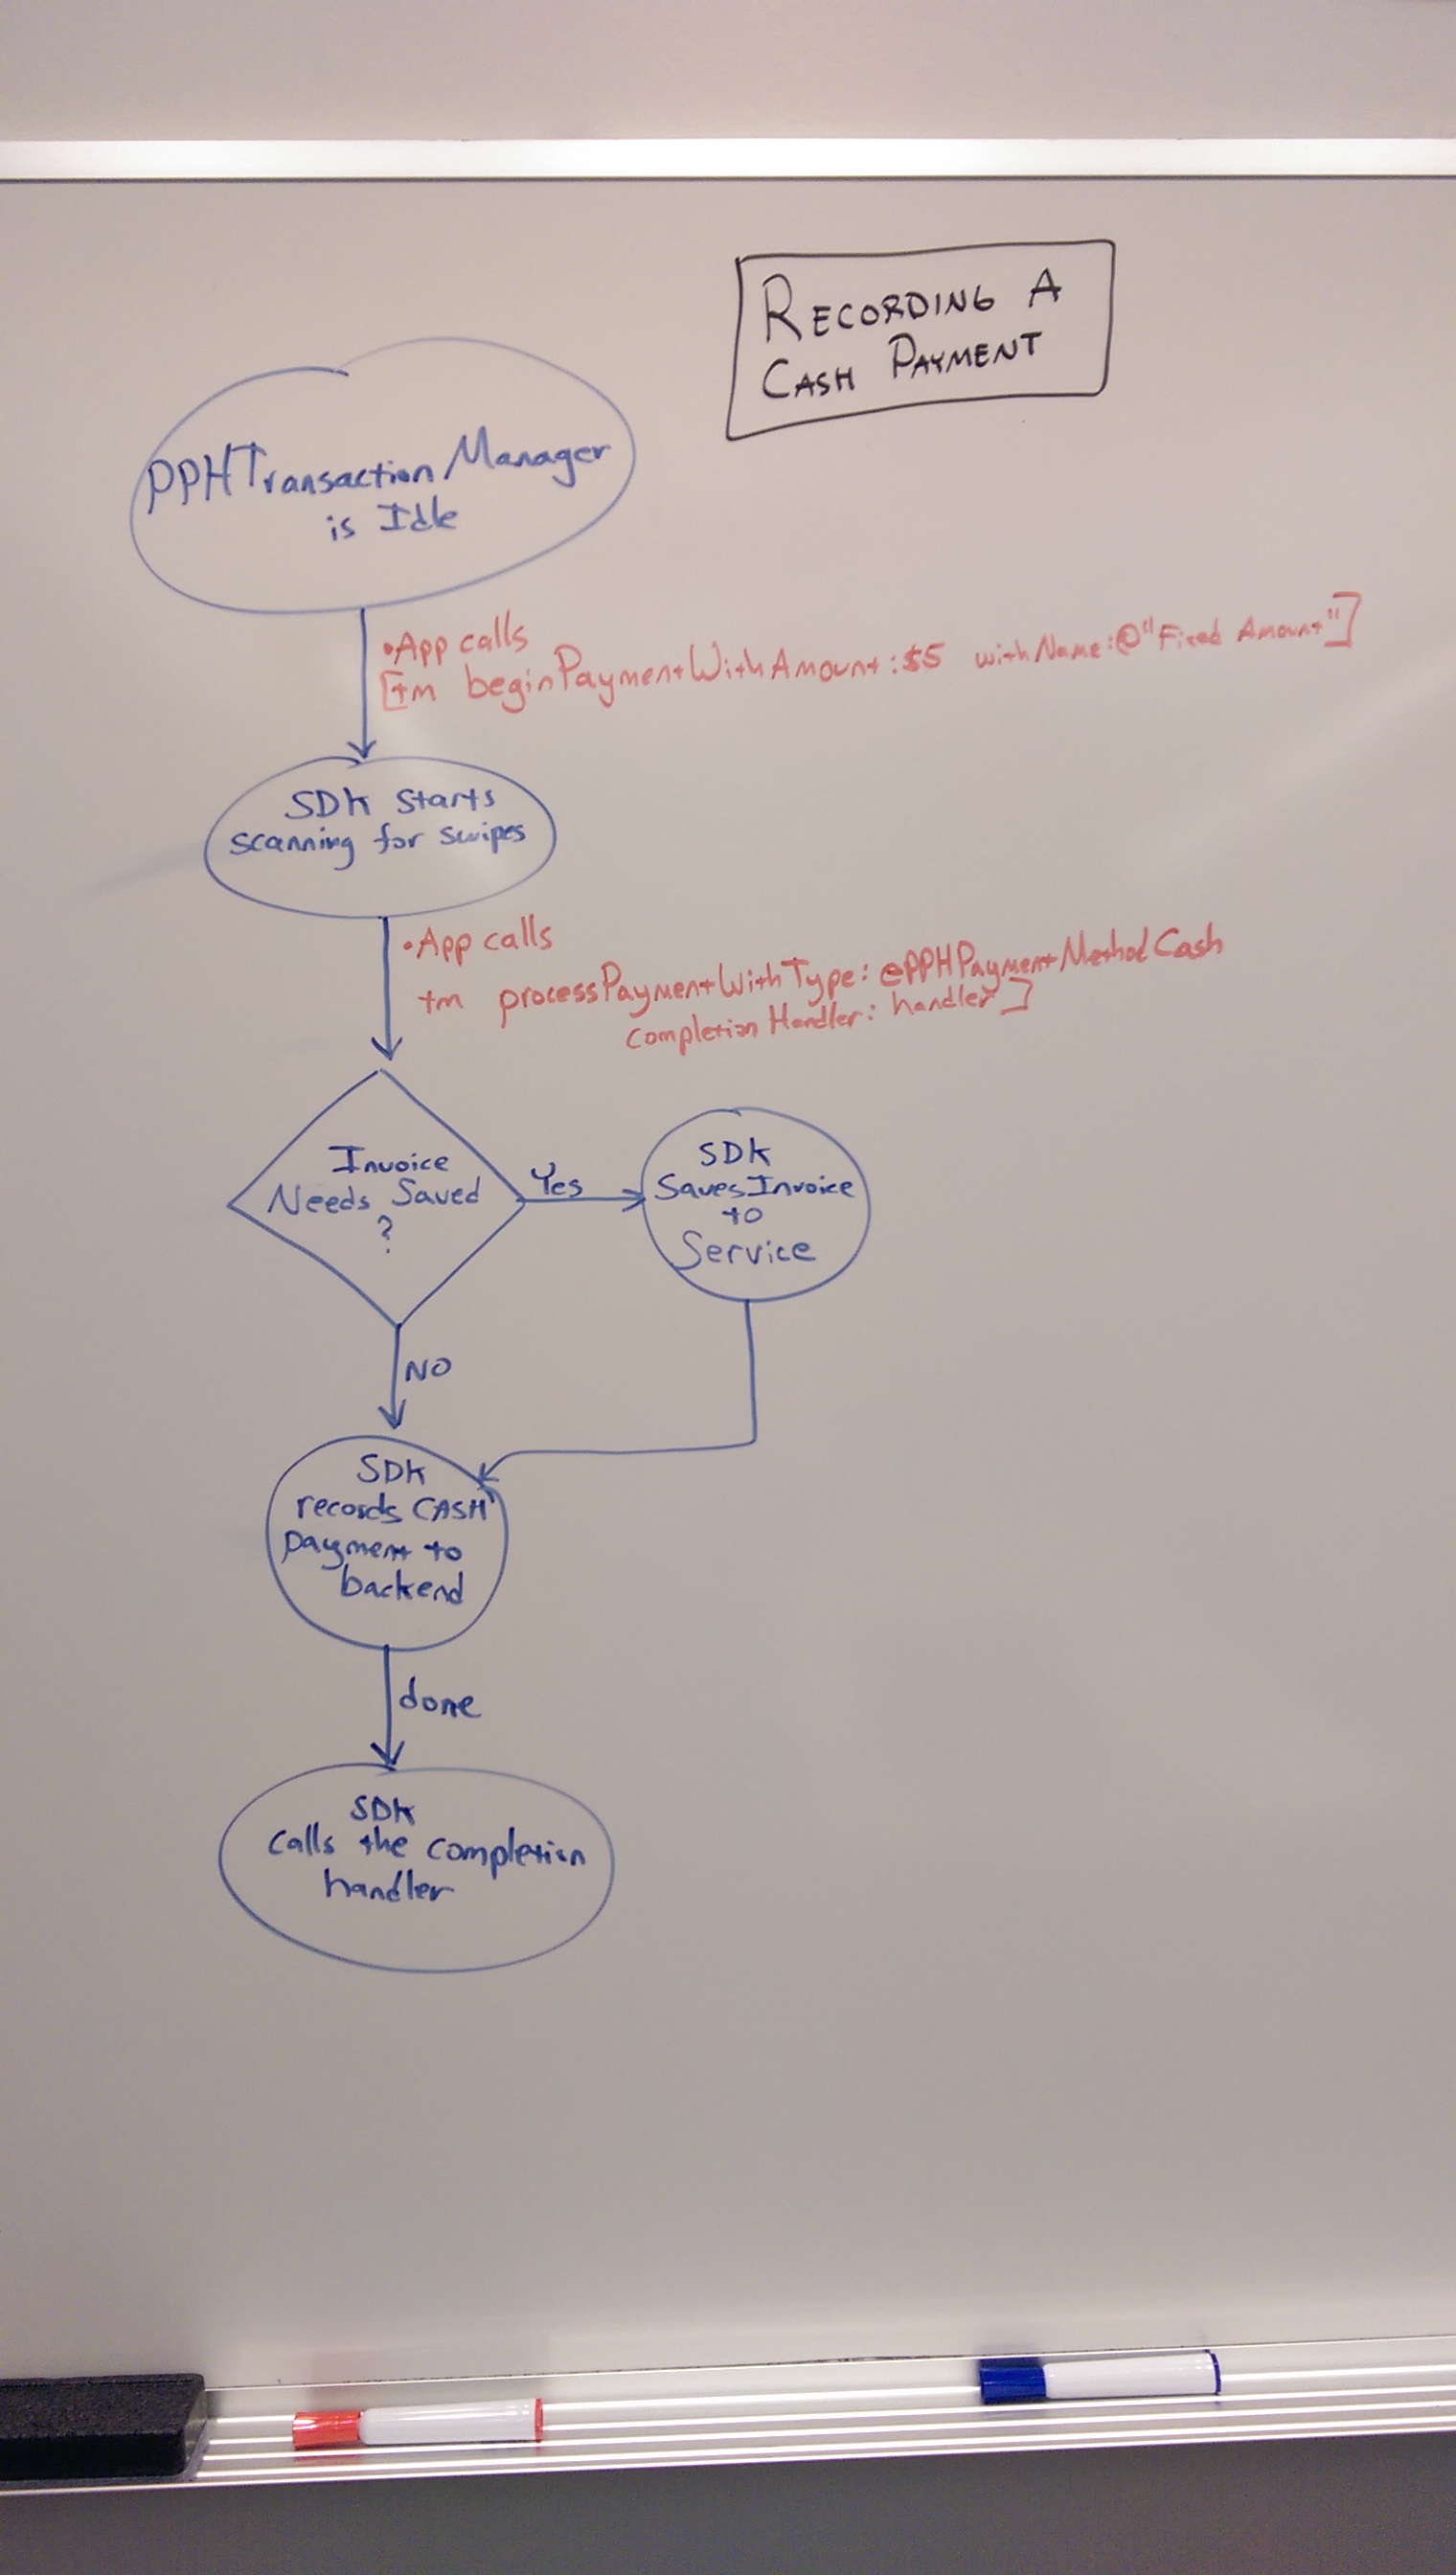 RECORDING A
CASH PAYMENT
PPHTransactionManager
is Idle
•App calls
[tm beginPaymentWithAmount:$5 withName:@"Fixed Amount"]
SDK Starts
scanning for swipes
•App calls
tm processPaymentWithType: ePPHPaymentMethodCash
completionHandler: handler]
Invoice
Needs Saved
?
Yes
SDK
Saves Invoice
to
Service
NO
SDK
records CASH
payment to
backend
done
SDK
calls the completion
handler